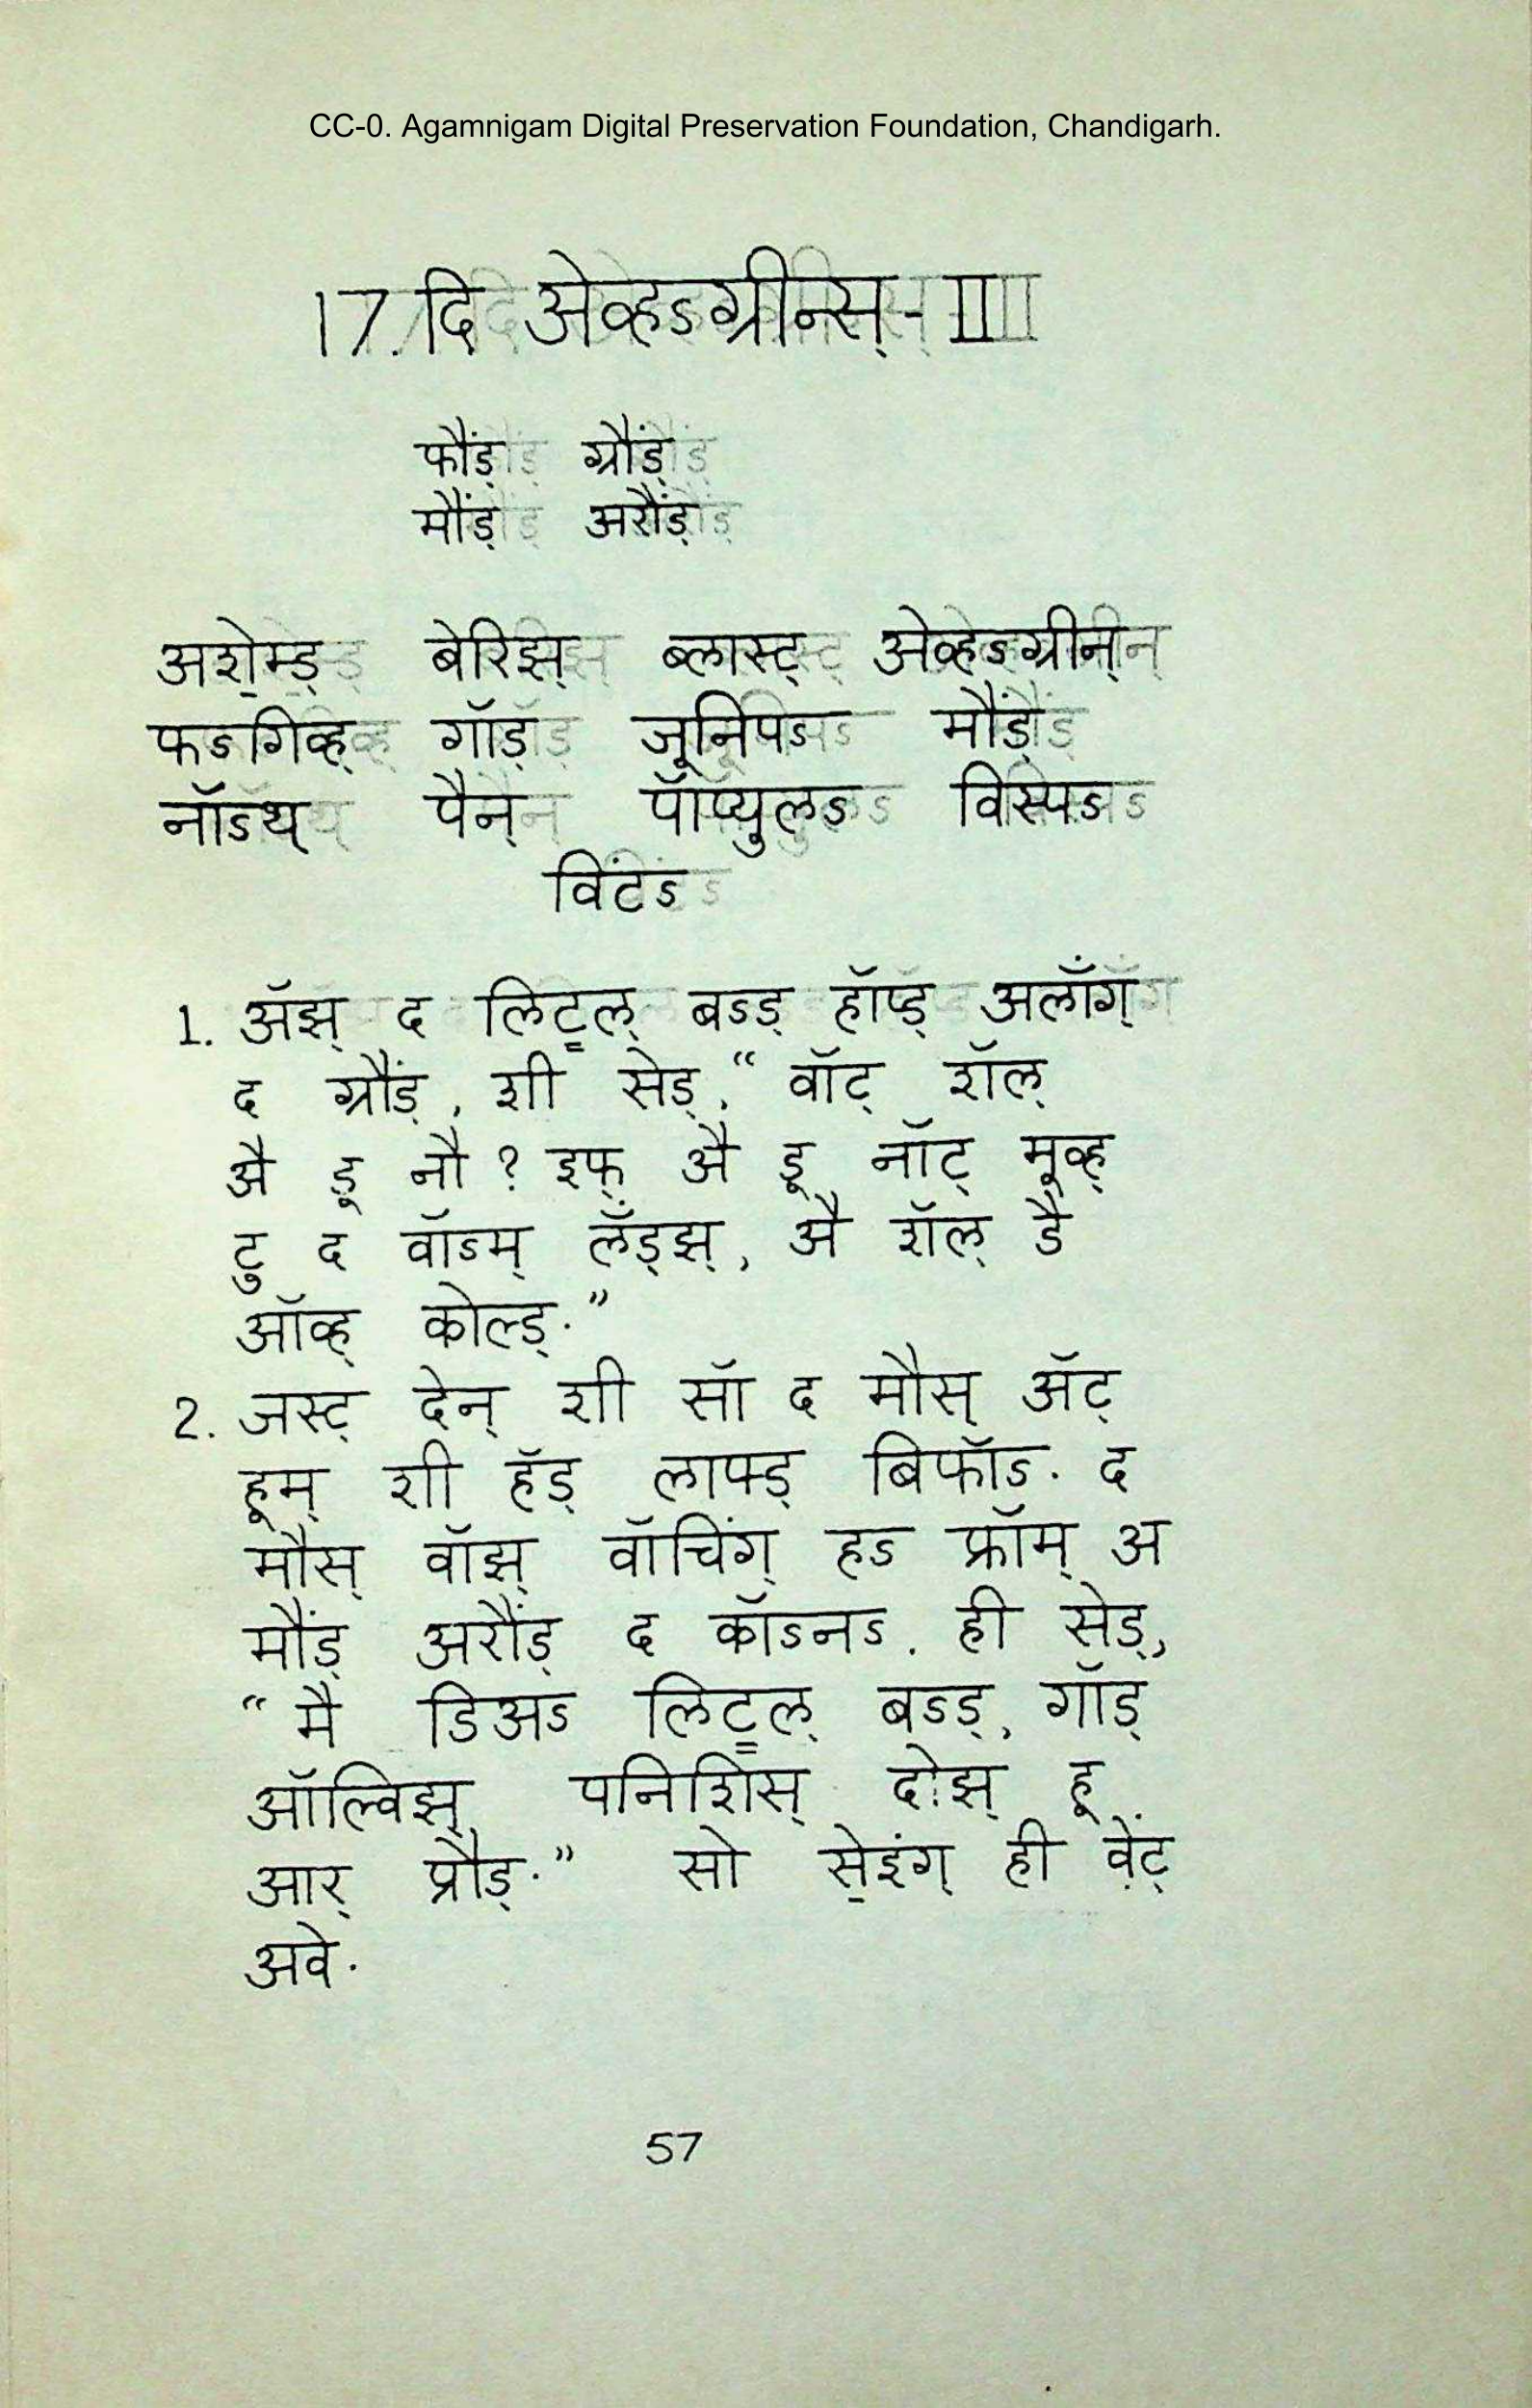 CC-0. Agamnigam Digital Preservation Foundation, Chandigarh.
17. दि अेव्हऽग्रीन्स्-III
फौंड् ग्रौंड्
मौंड् अरौंड्
अशे॒म्ड् बेरिझ् ब्लास्ट् अेव्हऽग्रीन्
फऽगिव्ह् गॉड् जूनिपऽ मौंड्
नॉऽथ् पैन् पॉप्युलऽ विस्पऽ
विंटऽ
1. ॲझ् द लिट्ल् बऽड् हॉप्ड् अलाँग्
द ग्रौंड्, शी सेड्, “ वॉट् शॅल्
अै डू नौ ? इफ् अै डू नॉट् मूव्ह्
टु द वॉऽम् लँड्झ्, अै शॅल् डै
ऑव्ह् कोल्ड्.”
2. जस्ट् देन् शी सॉ द मौस् ॲट्
हूम् शी हॅड् लाफ्ड् बिफॉऽ. द
मौस् वॉझ् वॉचिंग् हऽ फ्रॉम् अ
मौंड् अरौंड् द कॉऽनऽ. ही सेड्,
“ मै डिअऽ लिट्ल् बऽड्, गॉड्
ऑल्विझ् पनिशिस् दोझ् हू
आर् प्रौड्.” सो से॒इंग् ही वेंट्
अवे.
57